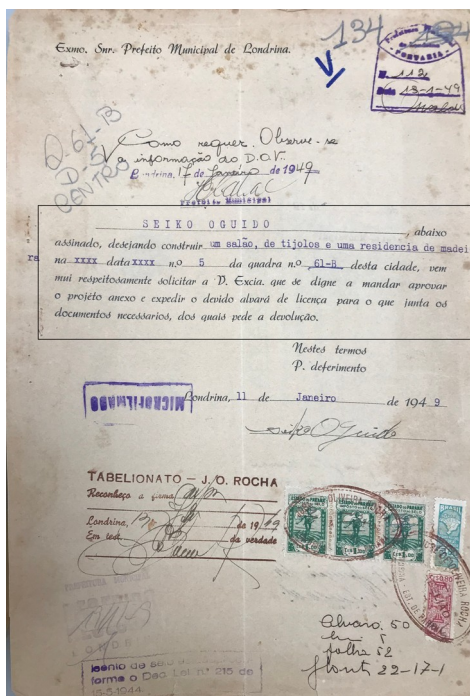 134
Exmo. Snr. Prefeito Municipal de Londrina.
PORTARIA
N. 112
Data 13-1-49
D. 61-B
D. 5
CENTRO
Como requer. Observe-se
a informação do D.O.V.
Londrina, 17 de Janeiro de 1949
Prefeito Municipal
SEIKO OGUIDO, abaixo
assinado, desejando construir um salão, de tijolos e uma residencia de madei
ra na xxxx data xxxx n.º 5 da quadra n.º 61-B, desta cidade, vem
mui respeitosamente solicitar a D. Excia. que se digne a mandar aprovar
o projéto anexo e expedir o devido alvará de licença para o que junta os
documentos necessarios, dos quais pede a devolução.
Nestes termos
P. deferimento
MICROFILMADO
Londrina, 11 de Janeiro de 1949
Seiko Oguido
TABELIONATO — J. O. ROCHA
Reconheço a firma
Londrina, de 1949
Em test. da verdade
ESTADO DO PARANÁ
BRASIL
Alvará. 50
folha 52
22-17-1
forme o Dec. Lei n° 215 de